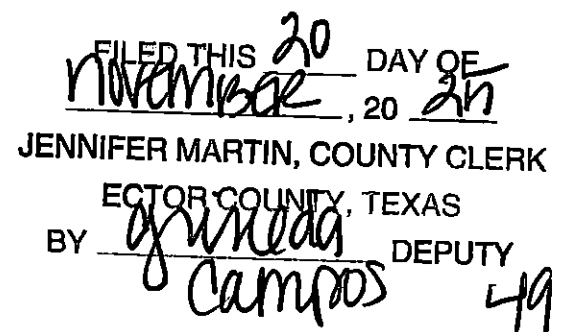 FILED THIS 20 DAY OF
November, 20 25
JENNIFER MARTIN, COUNTY CLERK
ECTOR COUNTY, TEXAS
BY DEPUTY
Campos
49